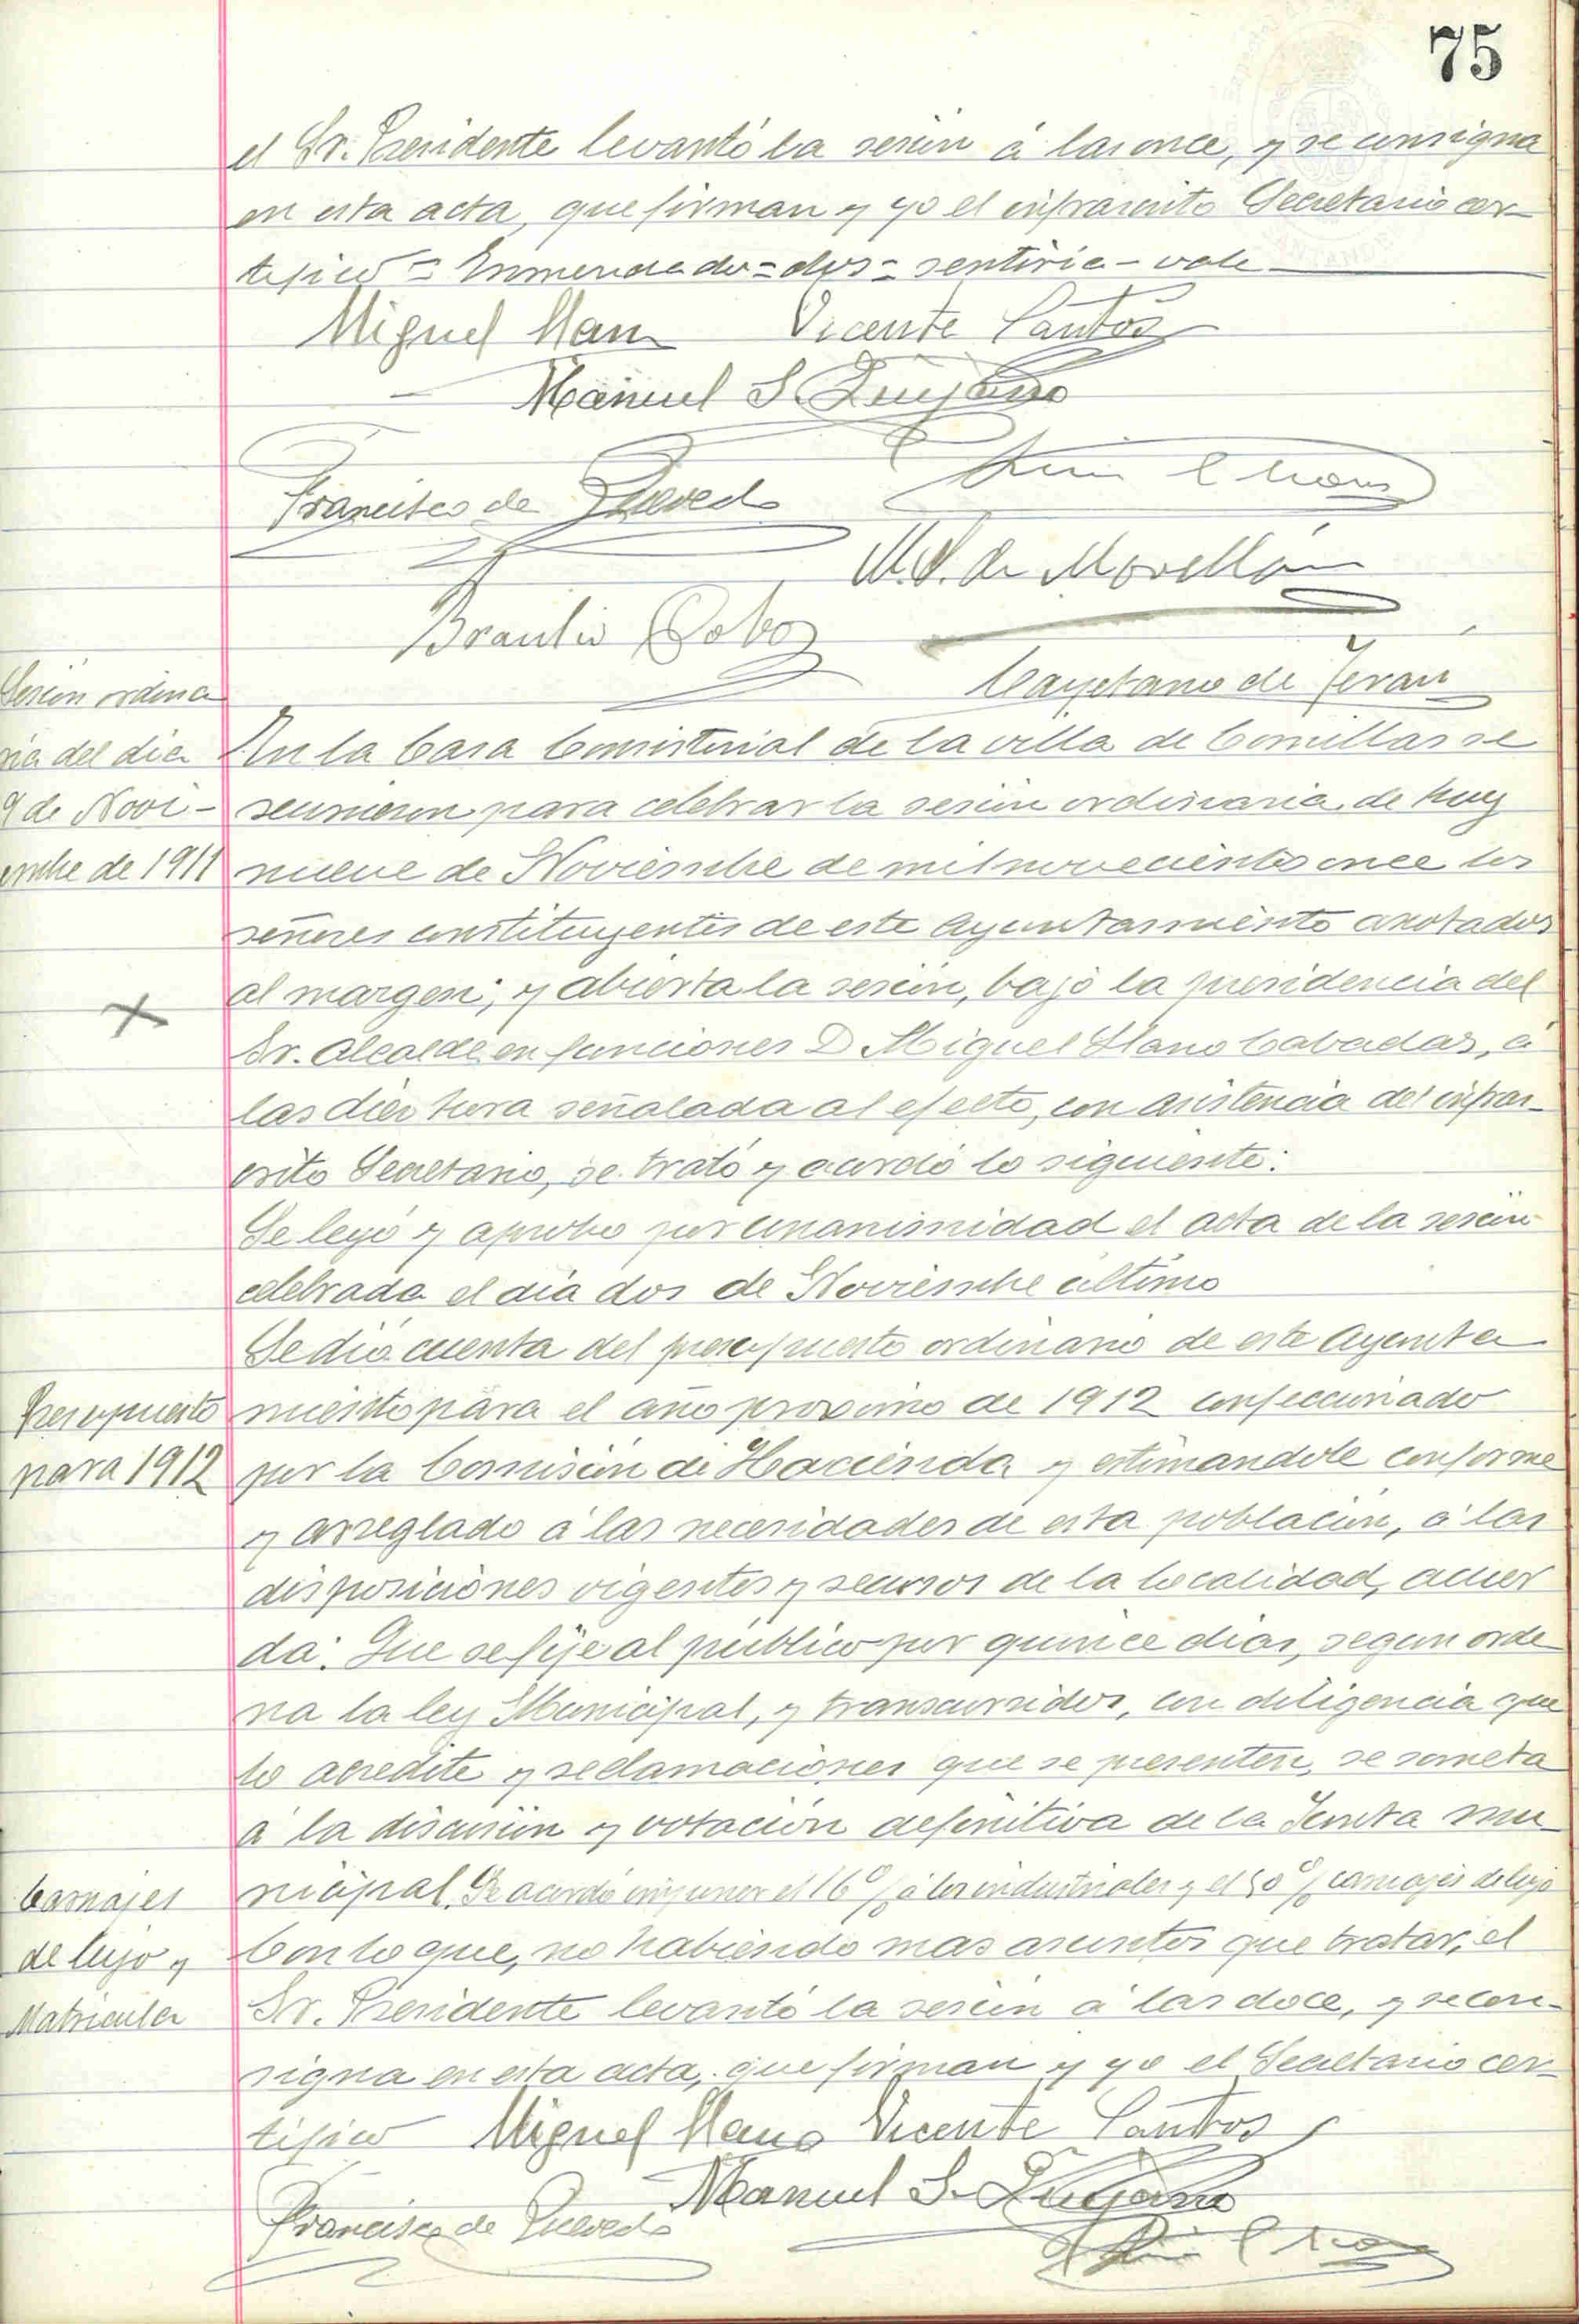 75
el Sr. Presidente levantó la sesión á las once, y se consigna
en esta acta, que firman y yo el infrascrito Secretario cer-
tifico = Enmendado = dos = sentiría - vale
Miguel Llano Vicente Santos
Manuel S. Quijano
Francisco de Quevedo
M. S. de Movellán
Braulio Cobo
Cayetano de Terán
Sesión ordina
ria del dia
9 de Novi-
embre de 1911
En la Casa Consistorial de la villa de Comillas se
reunieron para celebrar la sesión ordinaria de hoy
nueve de Noviembre de mil novecientos once los
señores constituyentes de este Ayuntamiento anotados
al margen; y abierta la sesión, bajo la presidencia del
Sr. Alcalde en funciones D Miguel Llano Cabadas, á
las diez hora señalada al efecto, con asistencia del infras-
crito Secretario, se trató y acordó lo siguiente:
Se leyó y aprobo por unanimidad el acta de la sesión
celebrada el día dos de Noviembre último
Se dió cuenta del presupuesto ordinario de este Ayunta
Presupuesto
para 1912
miento para el año proximo de 1912 confeccionado
por la Comisión de Hacienda y estimandole conforme
y arreglado á las necesidades de esta población, á las
disposiciones vigentes y recursos de la localidad, acuer
da: Que se fije al público por quince dias, segun orde
na la ley Municipal, y transcurridos, con diligencia que
lo acredite y reclamaciones que se presenten, se someta
á la discusión y votación definitiva de la Junta mu-
Carruajes
de lujo y
Matricula
nicipal. Se acordó imponer el 16 % á los industriales y el 50 % carruajes de lujo
Con lo que, no habiendo mas asuntos que tratar, el
Sr. Presidente levantó la sesión á las doce, y se con-
signa en esta acta, que firman y yo el Secretario cer-
tifico Miguel Llano Vicente Santos
Manuel S. Quijano
Francisco de Quevedo